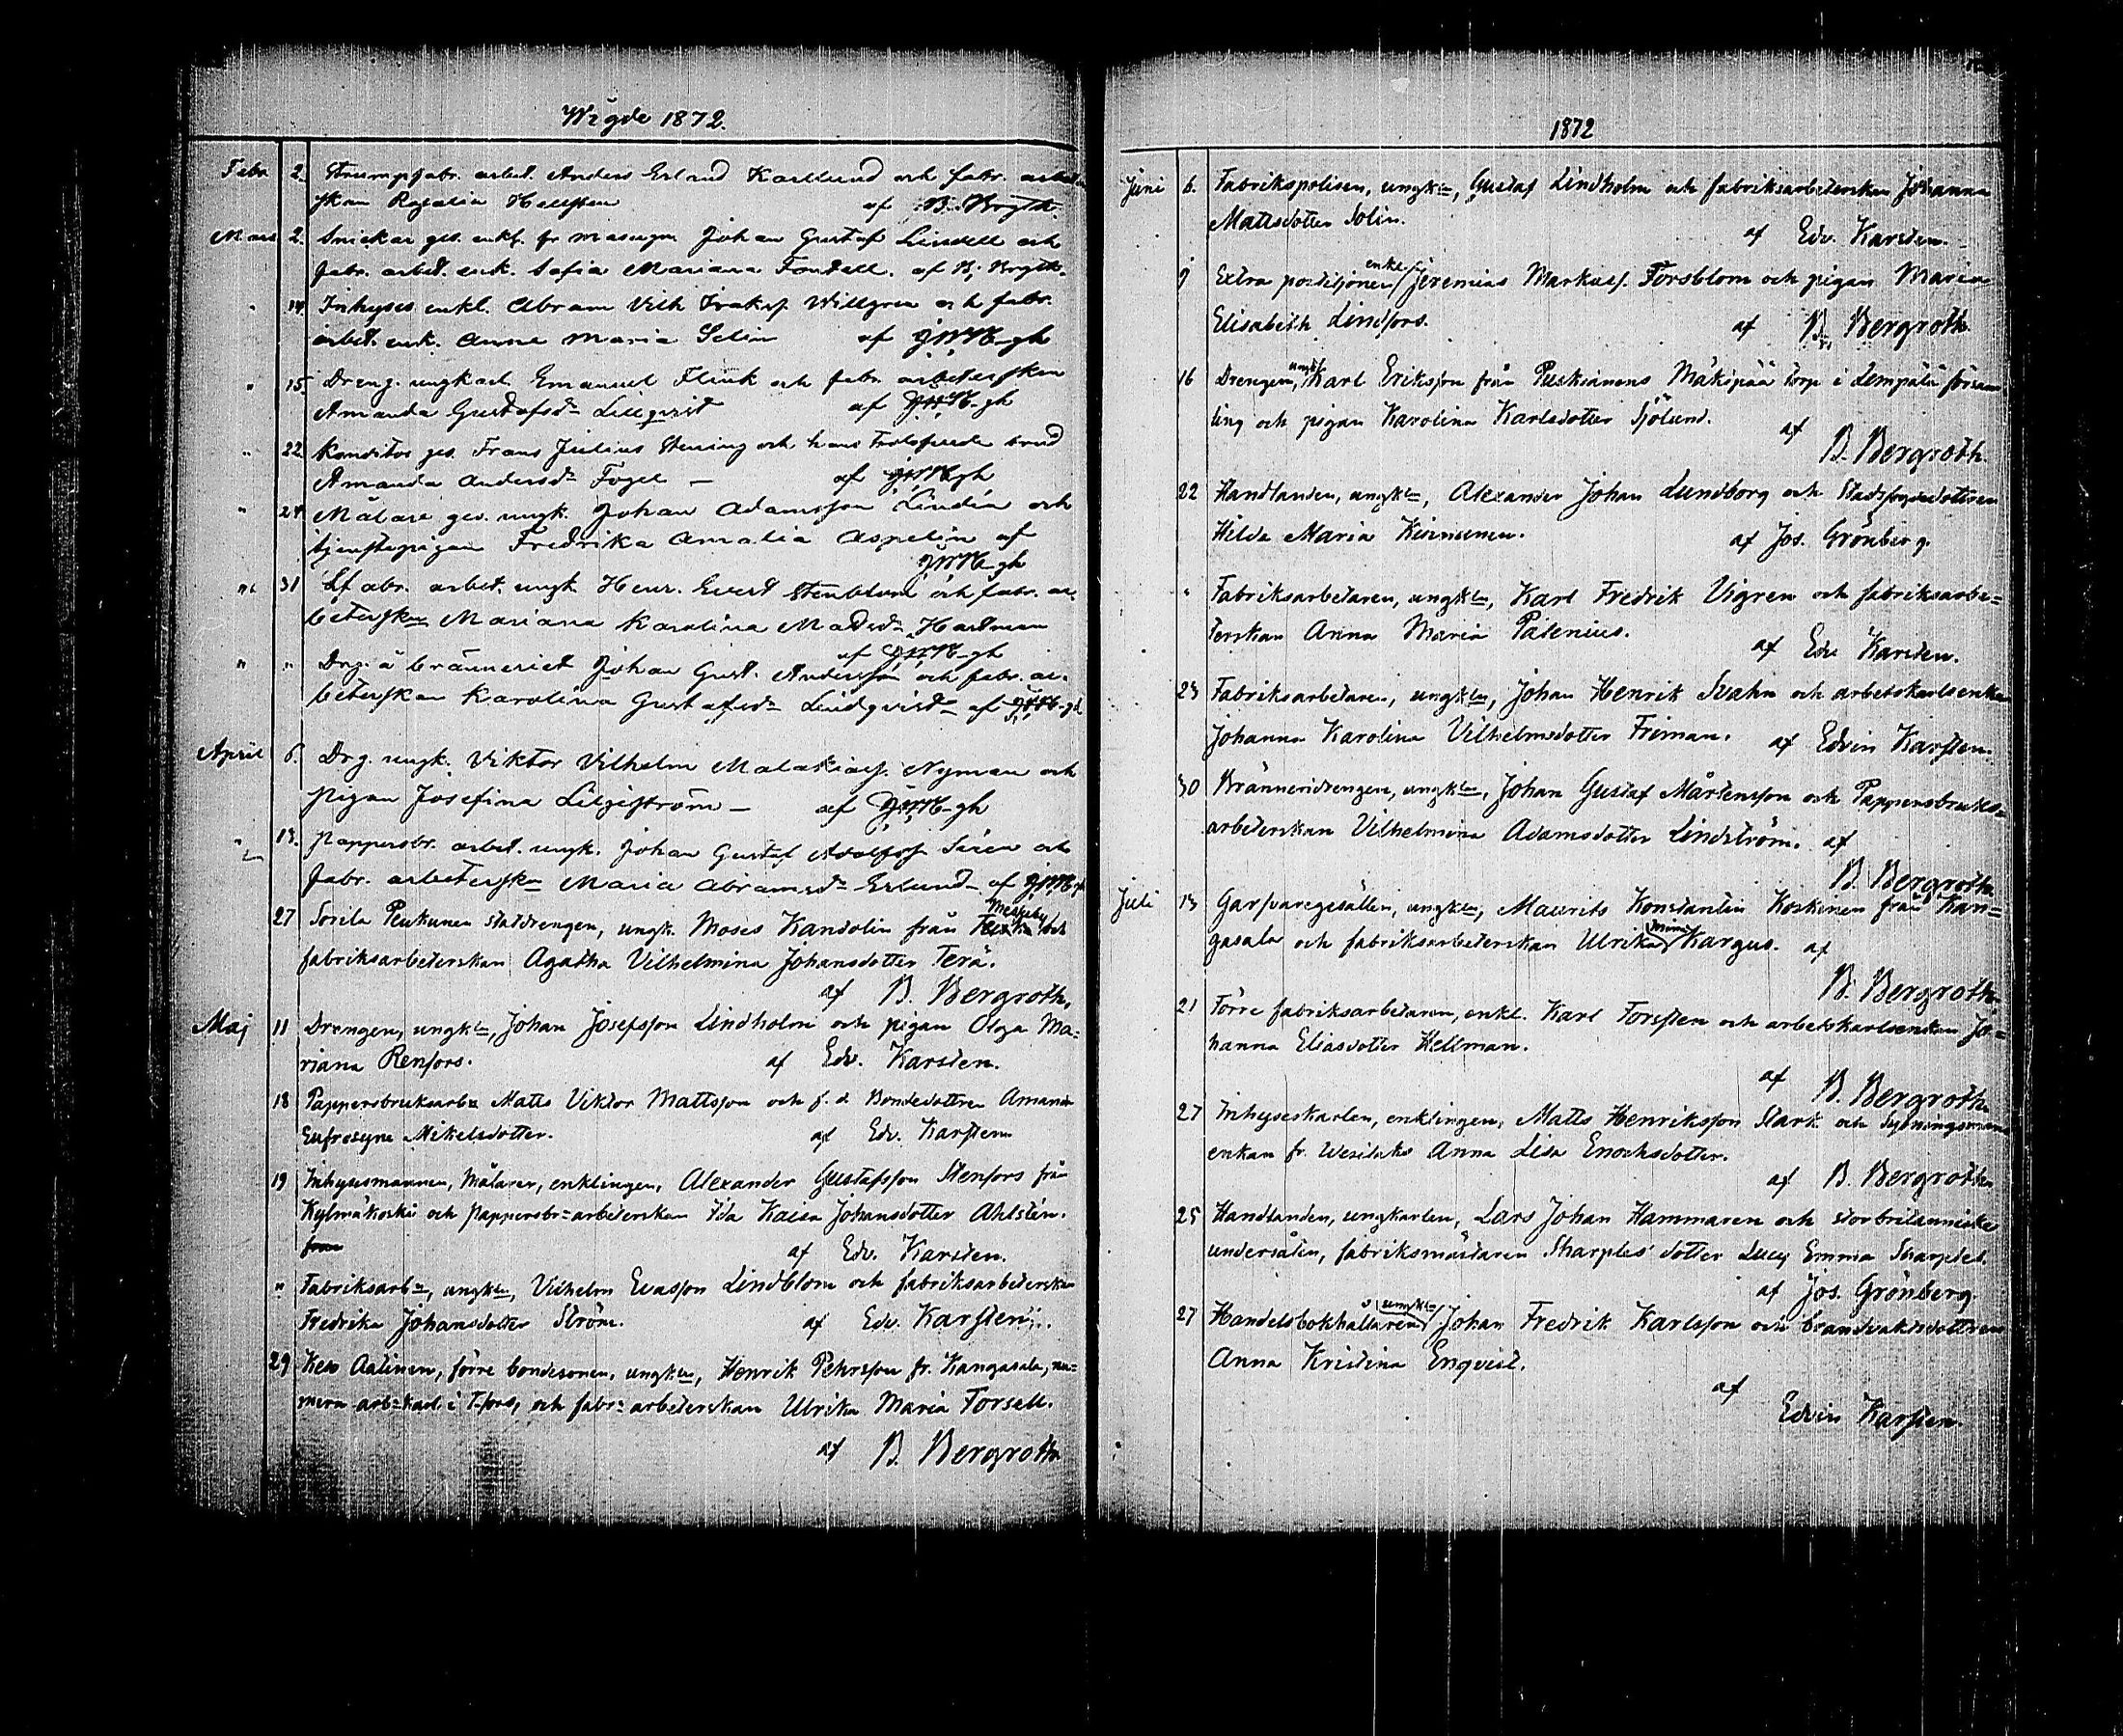 Wigde 1872.
Febr 2. Strumpfabr. arbet. Anders Erland Karllund och fabr. arbeter
skan Rosalia Hellsten af B. Brgth.
Mars 2. Snickar ges. enkl. fr Johan Gustaf Lindell och
fabr. arbet. enk. Sofia Mariana Fondell. af B. Brgth.
" 14. Inhyses enkl. Abram Vilh Isaksf Willgren och fabr.
arbet. enk. Anna Maria Selin af
" 15. Dreng. ungkarl Emanuel Flink och fabr arbeterskan
Amanda Gustafsdr Lillqvist af
" 22 Konditor ges. Frans Julius Stening och hans trolofvade brud
Amanda Andersdr Fogel — af
" 24. Målare ges. ungk. Johan Adamsson Lindén och
tjenstepigan Fredrika Amalia Aspelin af
" 31 fabr. arbet. ungk. Henr. Evert Stenblom och fabr. ar-
beterskan Mariana Karolina Matsdr Hartman
af
" " Drg. å bränneriet Johan Gust. Andersson och fabr. ar-
beterskan Karolina Gustafsdr Lindqvist af
April 6. Drg. ungk. Viktor Vilhelm Malakiasf. Nyman och
pigan Josefina Liljeström — af
" 13. Pappersbr. arbet. ungk. Johan Gustaf Adolfsf Sirén och
fabr. arbeterskn Maria Abramsdr Erlund af
27 Sorila Penkunen statdrengen, ungk. Moses Kandolin från Messuby och
fabriksarbeterskan Agatha Vilhelmina Johansdotter Terä.
af B. Bergroth,
Maj 11 Drengen, ungkln, Johan Josefsson Lindholm och pigan Olga Ma=
riana Renfors. af Edv. Karsten.
18 Pappersbruksarbn Matts Viktor Mattsson och f. d. Bondedottren Amanda
Eufrosyne Mikelsdotter. af Edv. Karsten
19 Inhysesmannen, Målaren, enklingen, Alexander Gustafsson Stenfors från
Kylmäkoski och pappersbr=arbeterskan Ida Kaisa Johansdotter Ahlstén.
från af Edv. Karsten.
" Fabriksarbn, ungkln, Vilhelm Evasson Lindblom och fabriksarbeterskan
Fredrika Johansdotter Ström. af Edv. Karsten.
29 Keso Aatinen, förre bondesonen, ungkln, Henrik Pehrsson fr. Kangasala, nu=
mera arb=karl i T-fors, och fabr=arbeterskan Ulrika Maria Forsell.
af B. Bergroth
1872
Juni 6. Fabrikspolisen, ungkln, Gustaf Lindholm och fabriksarbeterskan Johanna
Mattsdotter Solin. af Edv. Karsten.
9 Extra postiljonen, enkl Jeremias Markusf. Forsblom och pigan Maria
Elisabeth Lindfors. af B. Bergroth
16 Drengen, ungk Karl Eriksson från Puskianens Mäkipää torp i Lempälä försam
ling och pigan Karolina Karlsdotter Sjölund. af
B. Bergroth.
22 Handlanden, ungkln, Alexander Johan Lundborg och Stadsfogdedottren
Hilda Maria af Jos. Grönberg.
" Fabriksarbetaren, ungkln, Karl Fredrik Vigren och fabriksarbe=
terskan Anna Maria Palenius. af Edv Karsten.
23 Fabriksarbetaren, ungkln, Johan Henrik Svahn och arbetskarlsenkan
Johanna Karolina Vilhelmsdotter Friman. af Edvin Karsten.
30 Bränneridrengen, ungkln, Johan Gustaf Mårtensson och Pappersbruks=
arbeterskan Vilhelmina Adamsdotter Lindström. af
B. Bergroth
Juli 13 Garfvaregesällen, ungkln, Maurits Konstantin Koskinen från Kan=
gasala och fabriksarbeterskan Ulrika Kargus. af
B. Bergroth
21 Förre fabriksarbetaren, enkl. Karl Forsten och arbetskarlsenkan Jo=
hanna Eliasdotter Hellman.
af B. Bergroth
27 Inhyseskarlen, enklingen, Matts Henriksson Stark och Sytningsmans
enkan fr. Wesilaks Anna Lisa Enochsdotter.
af B. Bergroth
25 Handlanden, ungkarlen, Lars Johan Hammaren och storbritanniske
undersåten, fabriksmästaren Sharples' dotter Lucy Emma Sharples.
af Jos. Grönberg.
27 Handelsbokhållaren, ungkln Johan Fredrik Karlsson och brandvaktsdottren
Anna Kristina Enqvist.
af
Edvin Karsten.